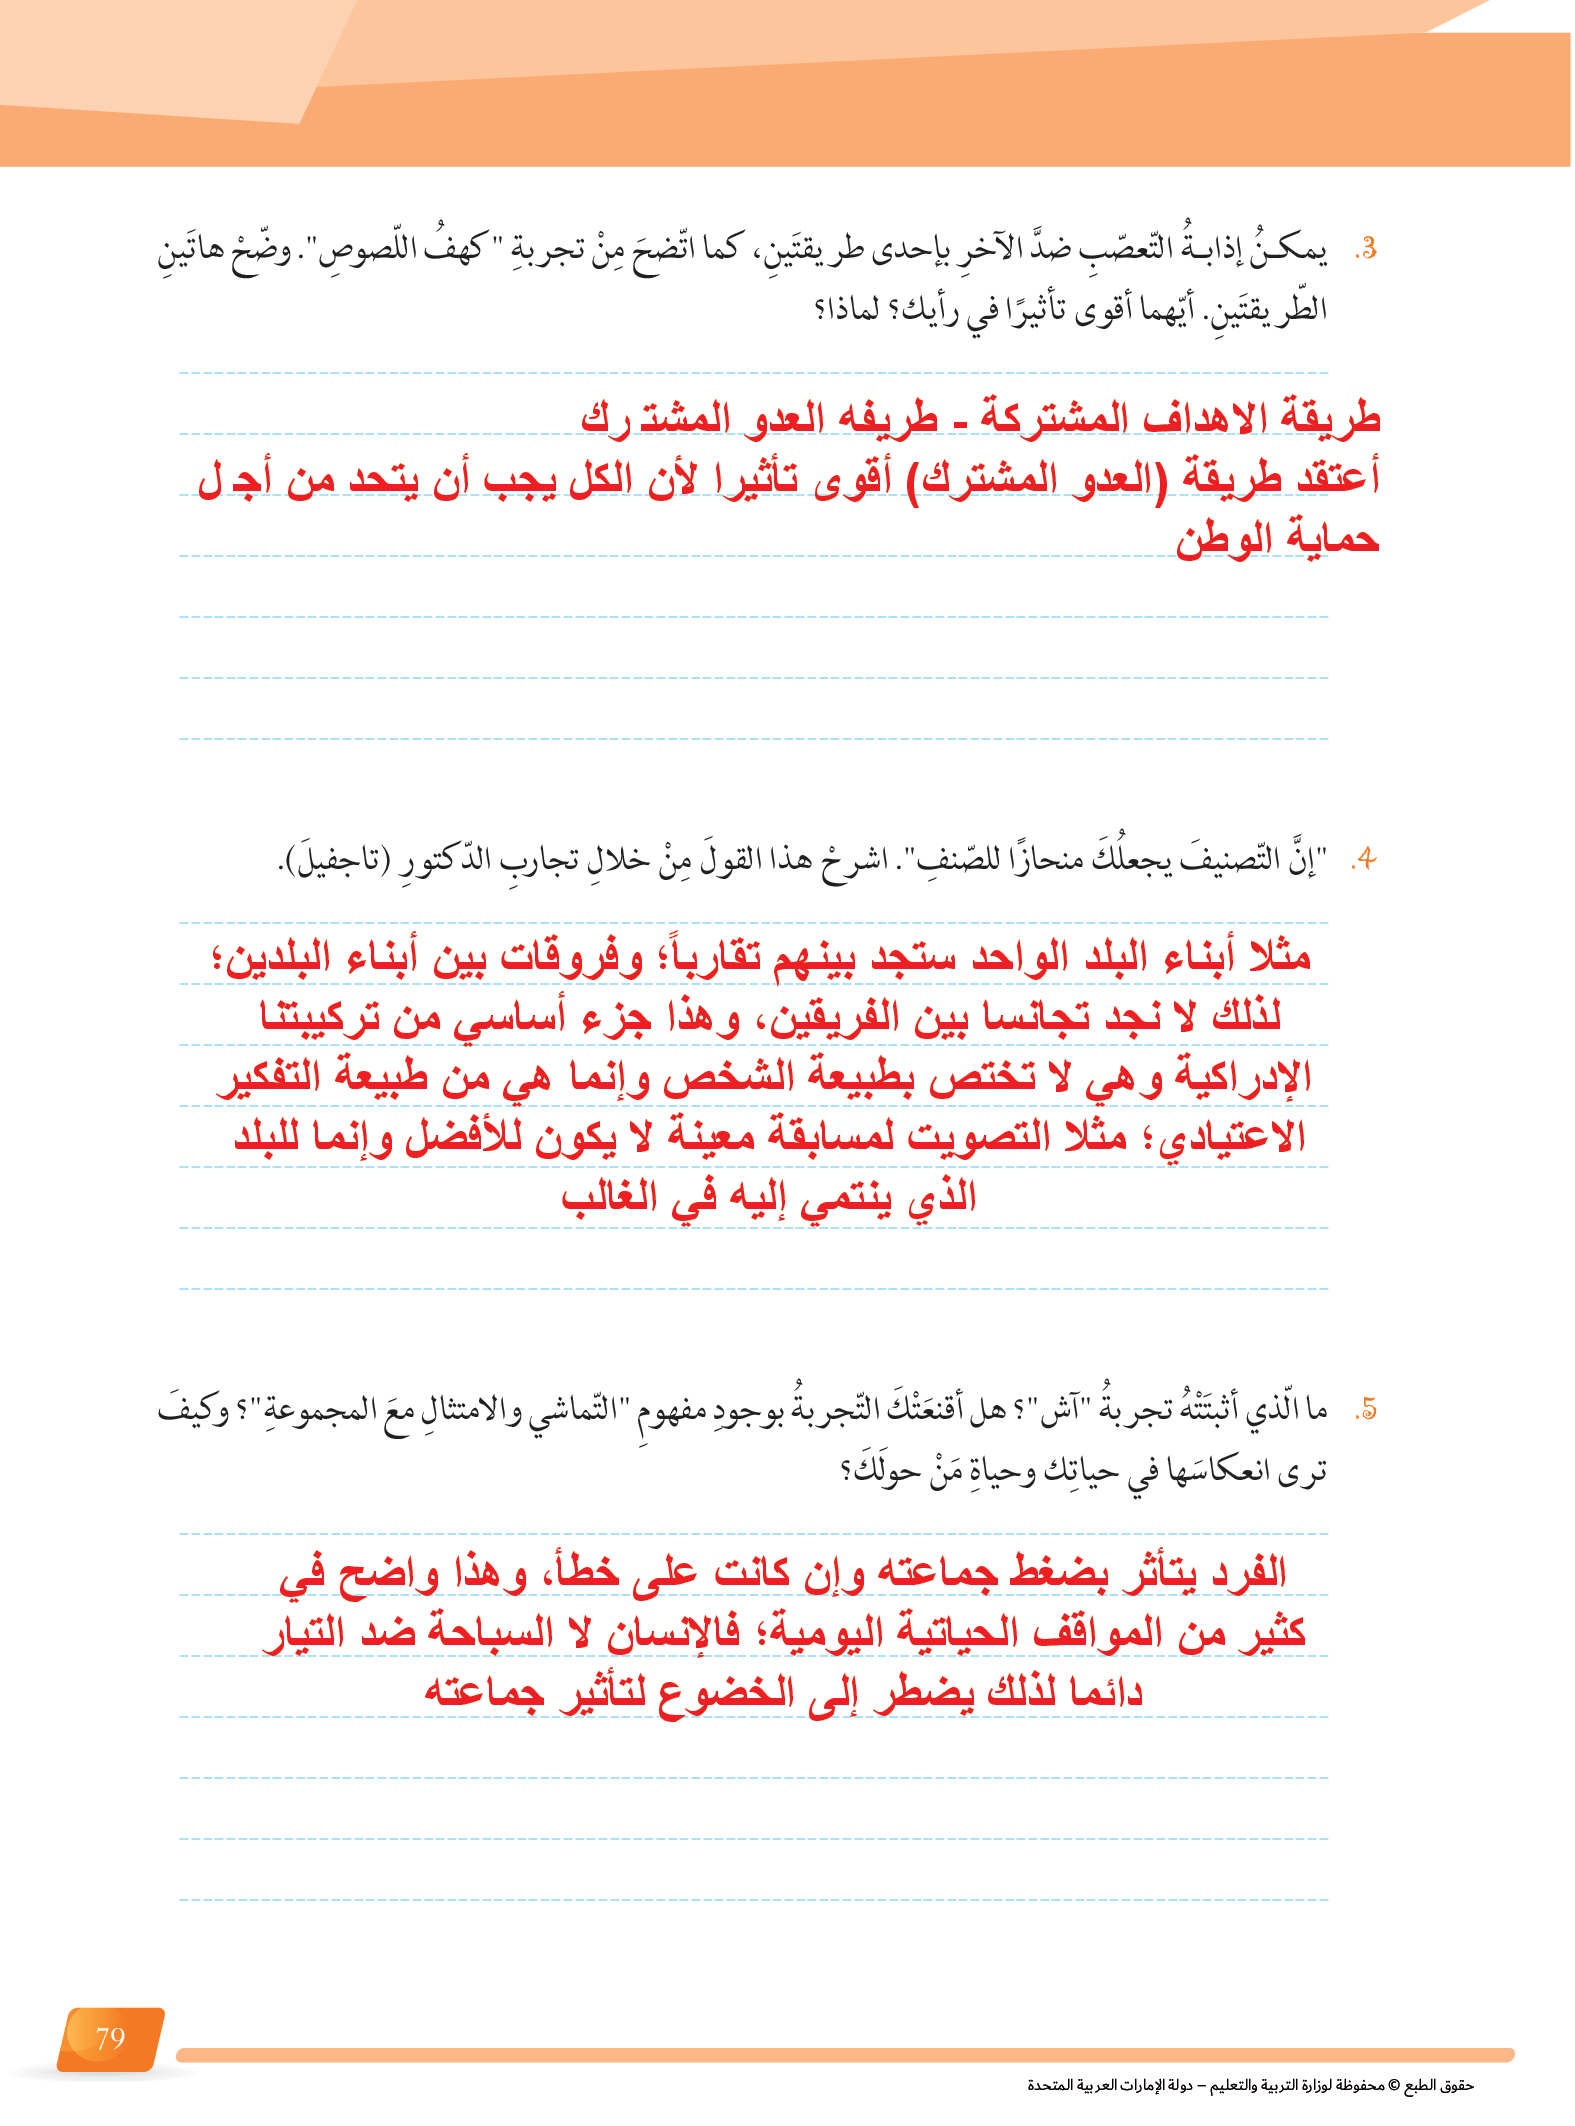 3. يمكنُ إذابةُ التّعصّبِ ضدَّ الآخرِ بإحدى طريقتَينِ، كما اتّضحَ مِنْ تجربةِ "كهفُ اللّصوصِ". وضّحْ هاتَينِ
الطّريقتَينِ. أيّهما أقوى تأثيرًا في رأيك؟ لماذا؟
طريقة الاهداف المشتركة - طريفه العدو المشترك
أعتقد طريقة (العدو المشترك) أقوى تأثيرا لأن الكل يجب أن يتحد من أجل
حماية الوطن
4. "إنَّ التّصنيفَ يجعلُكَ منحازًا للصّنفِ". اشرحْ هذا القولَ مِنْ خلالِ تجاربِ الدّكتورِ (تاجفيلَ).
مثلا أبناء البلد الواحد ستجد بينهم تقارباً؛ وفروقات بين أبناء البلدين؛
لذلك لا نجد تجانسا بين الفريقين، وهذا جزء أساسي من تركيبتنا
الإدراكية وهي لا تختص بطبيعة الشخص وإنما هي من طبيعة التفكير
الاعتيادي؛ مثلا التصويت لمسابقة معينة لا يكون للأفضل وإنما للبلد
الذي ينتمي إليه في الغالب
5. ما الّذي أثبتَتْهُ تجربةُ "آش"؟ هل أقنعَتْكَ التّجربةُ بوجودِ مفهومِ "التّماشي والامتثالِ معَ المجموعةِ"؟ وكيفَ
ترى انعكاسَها في حياتِك وحياةِ مَنْ حولَكَ؟
الفرد يتأثر بضغط جماعته وإن كانت على خطأ، وهذا واضح في
كثير من المواقف الحياتية اليومية؛ فالإنسان لا السباحة ضد التيار
دائما لذلك يضطر إلى الخضوع لتأثير جماعته
79
حقوق الطبع © محفوظة لوزارة التربية والتعليم – دولة الإمارات العربية المتحدة